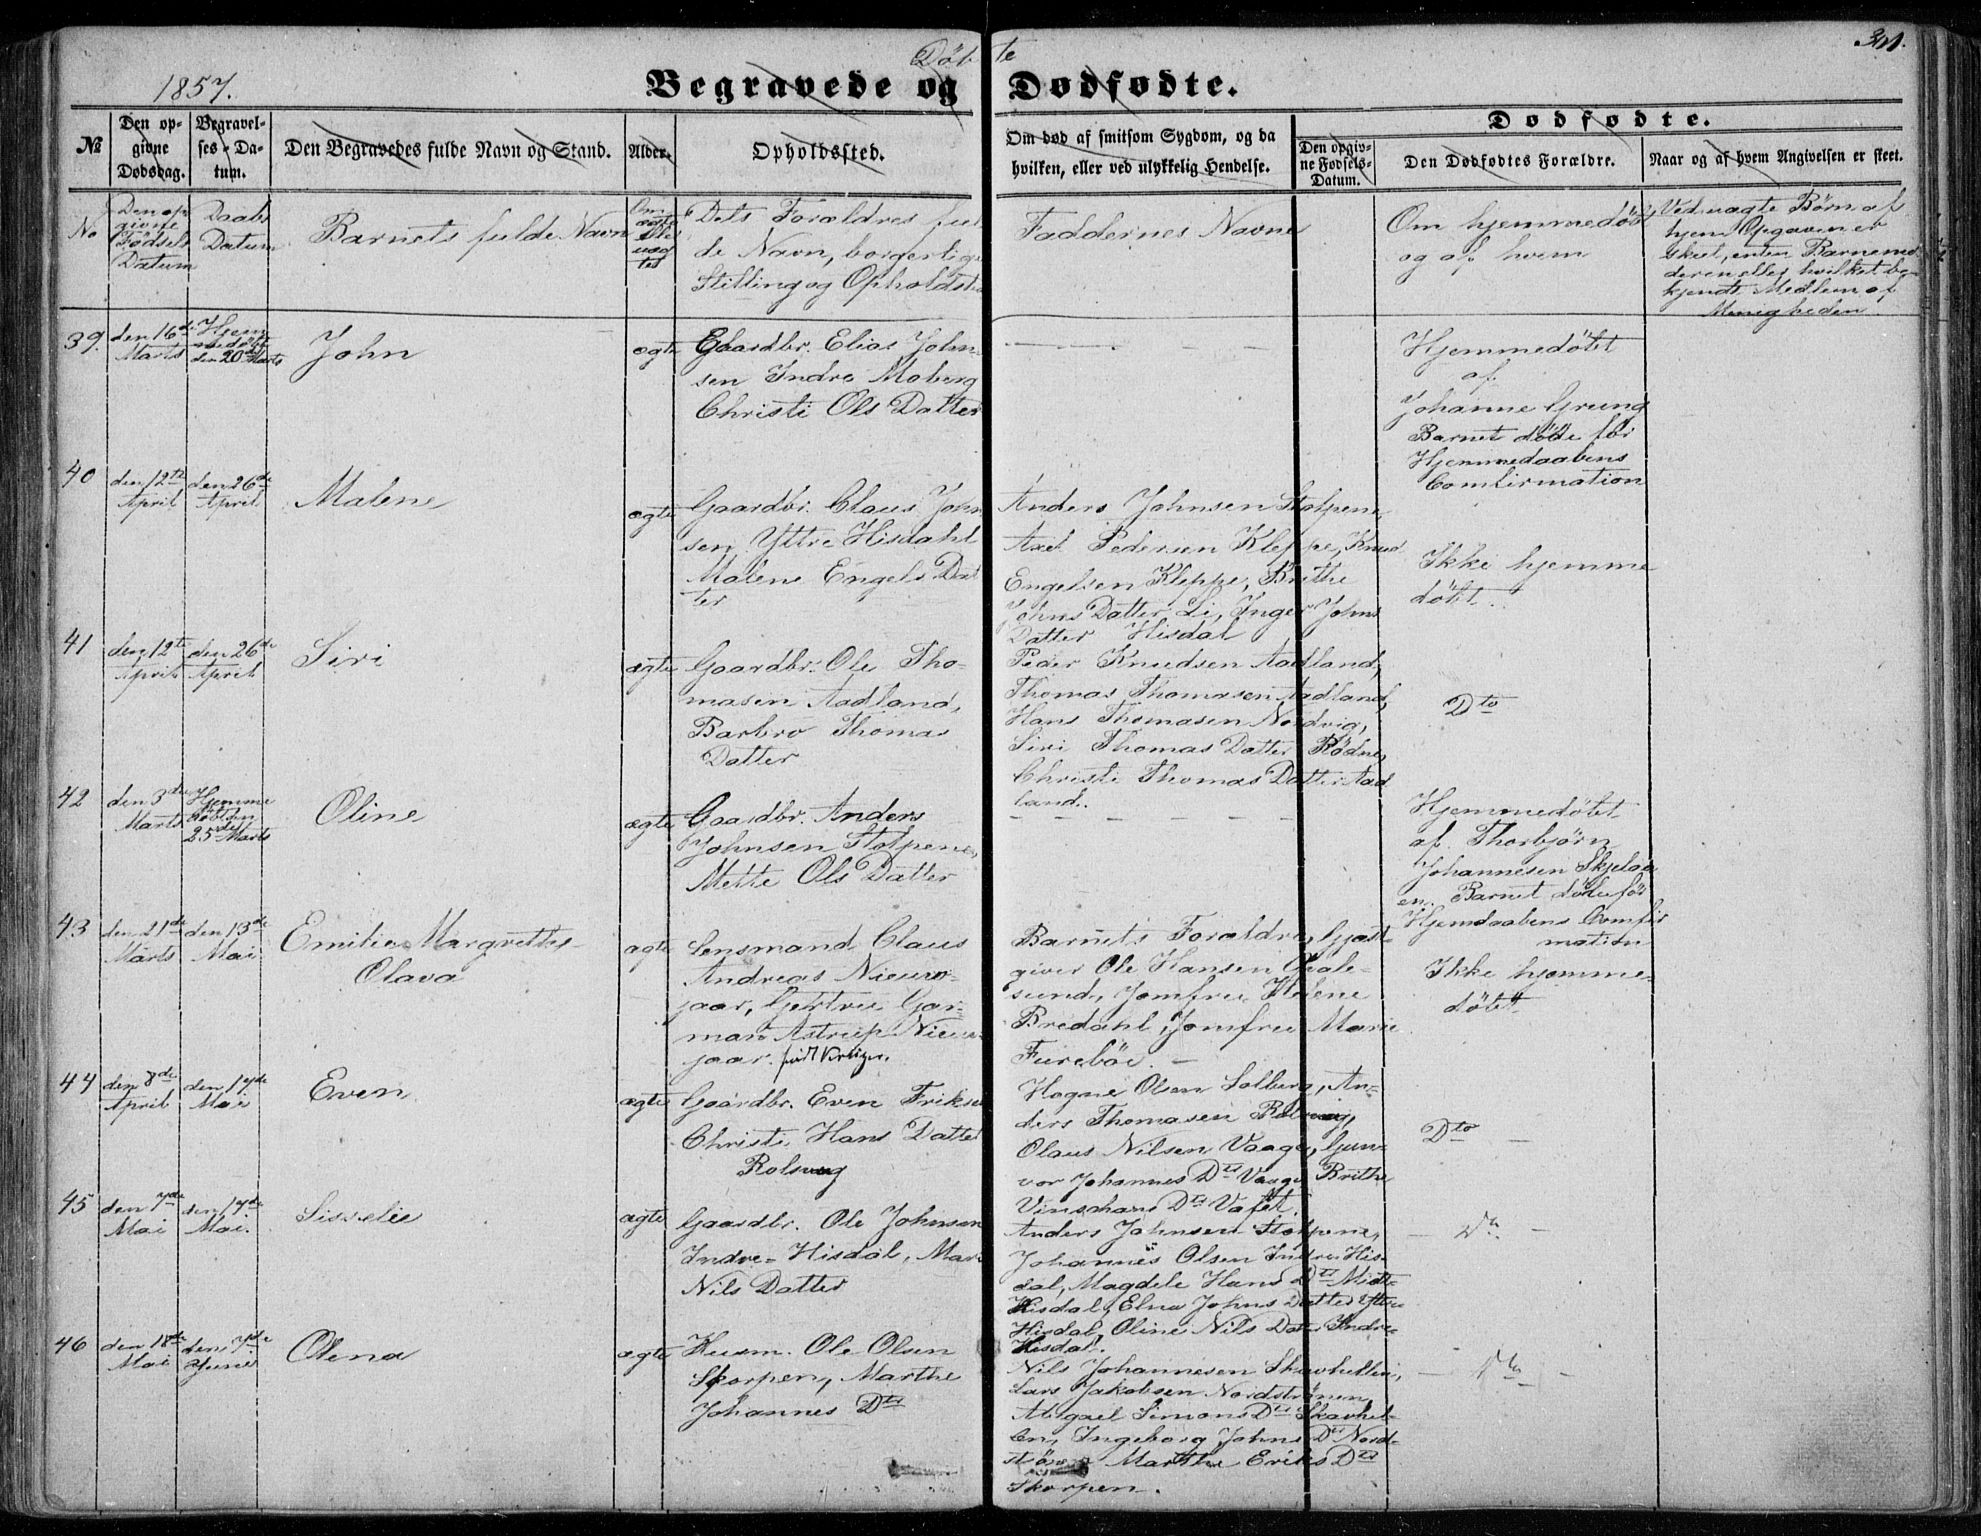 1857.
Döbte
311.
Begravede og Dødfødte.
№
Den op-
givne
Dødsdag.
Begravel-
ses-Da-
tum.
Den Begravedes fulde Navn og Stand.
Alder.
Opholdssted.
Om død af smitsom Sygdom, og da
hvilken, eller ved ulykkelig Hendelse.
Dødfødte.
Den opgiv-
ne Fødsels-
Datum.
Den Dødfødtes Forældre.
Naar og af hvem Angivelsen er skeet.
No
Den op
givne
Födsels
Datum
Daabs
Datum
Barnets fulde Navn
Om
ægte
eller
uæg
te
Dets Forældres ful
de Navn, borgerlige
Stilling og Opholdst
Faddernes Navne
Om hjemmedöbt
og af hvem
Ved uægte Börn af
hjem Opgaven er
skeet, enten Barnemod
deren eller hvilket be-
kjendt Medlem af
Menigheden.
39.
den 16de
Marts
Hjem
medöbt
den 20de Marts
John
ægte
Gaardbr. Elias John-
sen Indre Moberg
Christi Ols Datter
Hjemmedöbt
af
Johanne Grung
Barnet döde för
Hjemmedaabens
Comfirmation
40
den 12te
April
den 26de
April
Malene
ægte
Gaardbr. Claus John
sen Yttre Hisdahl
Malene Engels Dat
ter
Anders Johnsen Stolpene,
Axel Pedersen Kleppe, Knud
Engelsen Kleppe, Brithe
Johns Datter Li, Inger Johns
Datter Hisdal
Ikke hjemme
döbt.
41
den 12te
April
den 26de
April
Siri
ægte
Gaardbr. Ole Tho-
masen Aadland,
Barbro Thomas
Datter
Peder Knudsen Aadland,
Thomas Thomasen Aadland,
Hans Thomasen Nordvig,
Siri Thomas Datter Rödne,
Christi Thomas Datter Aad
land.
Dto
42
den 3die
Marts
Hjemme
döbt den
25de Marts
Oline
ægte
Gaardbr. Anders
Johnsen Stolpene,
Mette Ols Datter
Hjemmedöbt
af Thorbjörn
Johannesen Skjelaa
en. Barnet döde för
Hjemdaabens Comfir
mation
43
den 21de
Marts
den 13de
Mai
Emilie Margrethe
Olava
ægte
Lensmand Claus
Andreas Nieuw-
jaar, Gjertru Gar-
man Astrup Nieuw
jaar. født Krüger.
Barnets Forældre, Gjæst-
giver Ole Hansen Hvale-
sund, Jomfru Helene
Bredahl, Jomfru Marie
Fureböe. -
Ikke hjemme-
döbt
44
den 8de
April
den 17de
Mai
Even
ægte
Gaardbr. Even Eriksen
Christi Hans Datter
Rolsvaag
Hogne Olsen Solberg, An-
ders Thomasen Rolsvaag,
Olaus Nilsen Vaage, Gun-
vor Johannes Dtr Vaage, Brithe
Vinschans Dtr Vaset.
Dto -
45
den 7de
Mai
den 17de
Mai.
Sisselie
ægte
Gaardbr. Ole Johnsen
Indre-Hisdal, Mar
Nils Datter
Anders Johnsen Stolpene,
Johannes Olsen Indre His-
dal, Magdele Hans Dtr Midt-
Hisdal, Elna Johns Datter Yttre
Hisdal, Oline Nils Datr Indre-
Hisdal.
- Dto -
46
den 18de
Mai
den 7de
Juni
Olena
ægte
Huusm. Ole Olsen
Skorpen, Marthe
Johannes Dtr
Nils Johannesen Skavhellen,
Lars Jakobsen Nordströnen,
Abigael Simons Dtr Skavhel-
len, Ingeborg Johns Dtr Nord-
strönen Marthe Eriks Dtr
Skorpen.
- Dto -